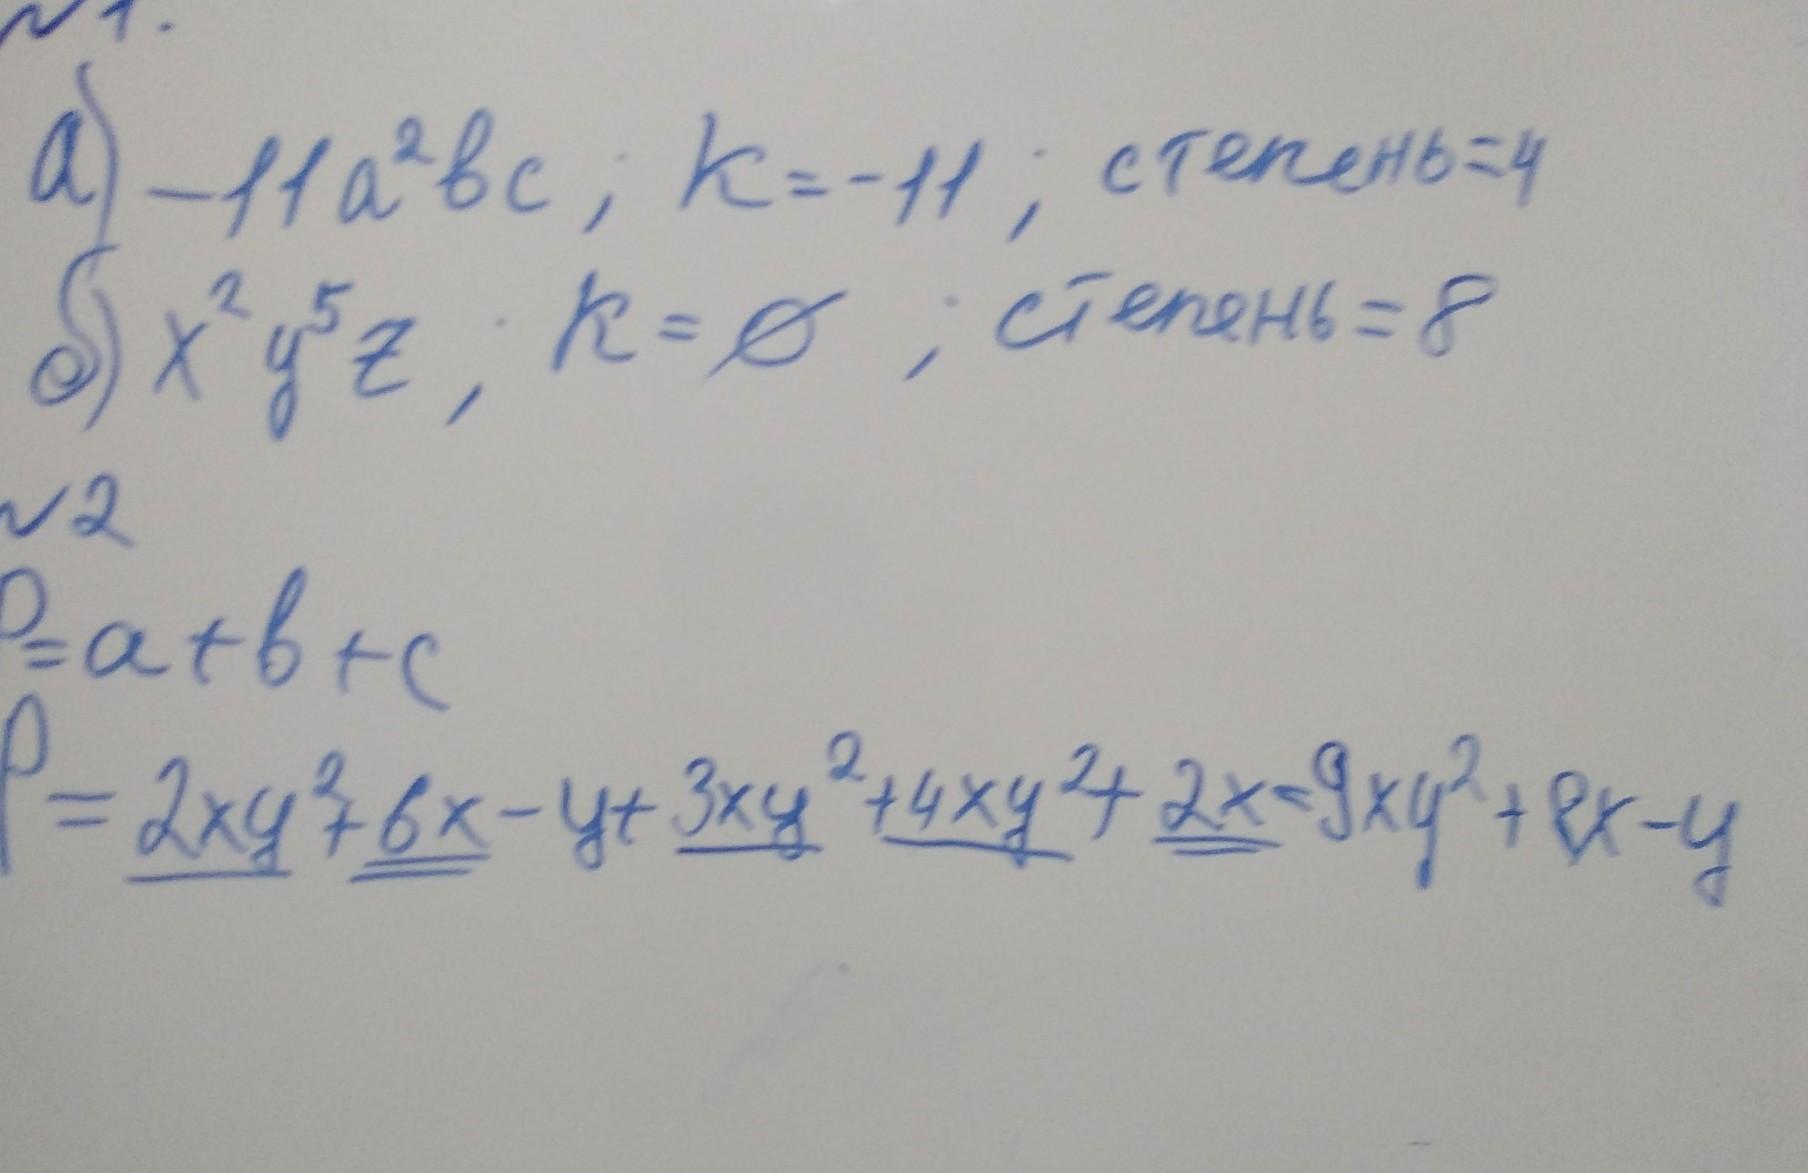 №1.
а) -11a²bc; K=-11; степень=4
б) x²y⁵z; K=∅; степень=8
№2
P=a+b+c
P=2xy²+6x-y+3xy²+4xy²+2x=9xy²+8x-y